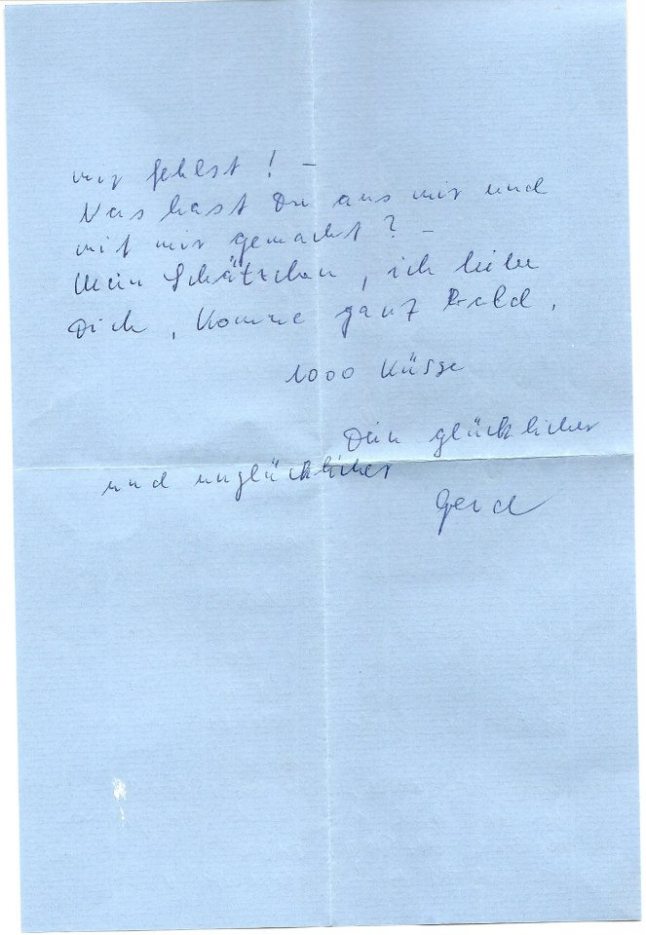 mir fehlst! –
Was hast Du aus mir und
mit mir gemacht? –
Mein Schätzchen, ich liebe
Dich, komme ganz bald.
1000 Küsse
Dein glücklicher
und unglücklicher
Gerd